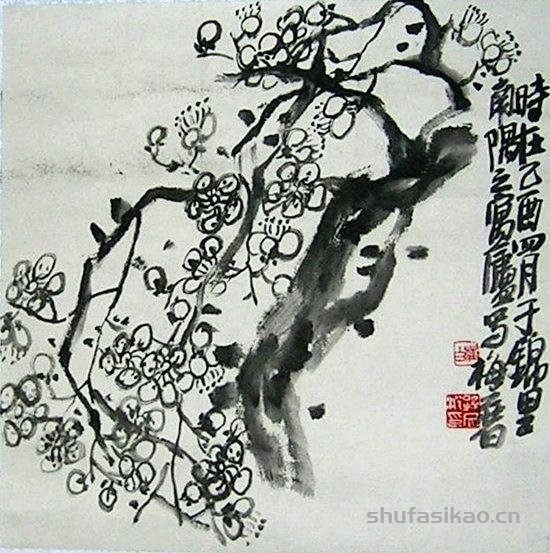 時在乙酉四月于錦里
南陽之寓廬寫梅
shufasikao.cn